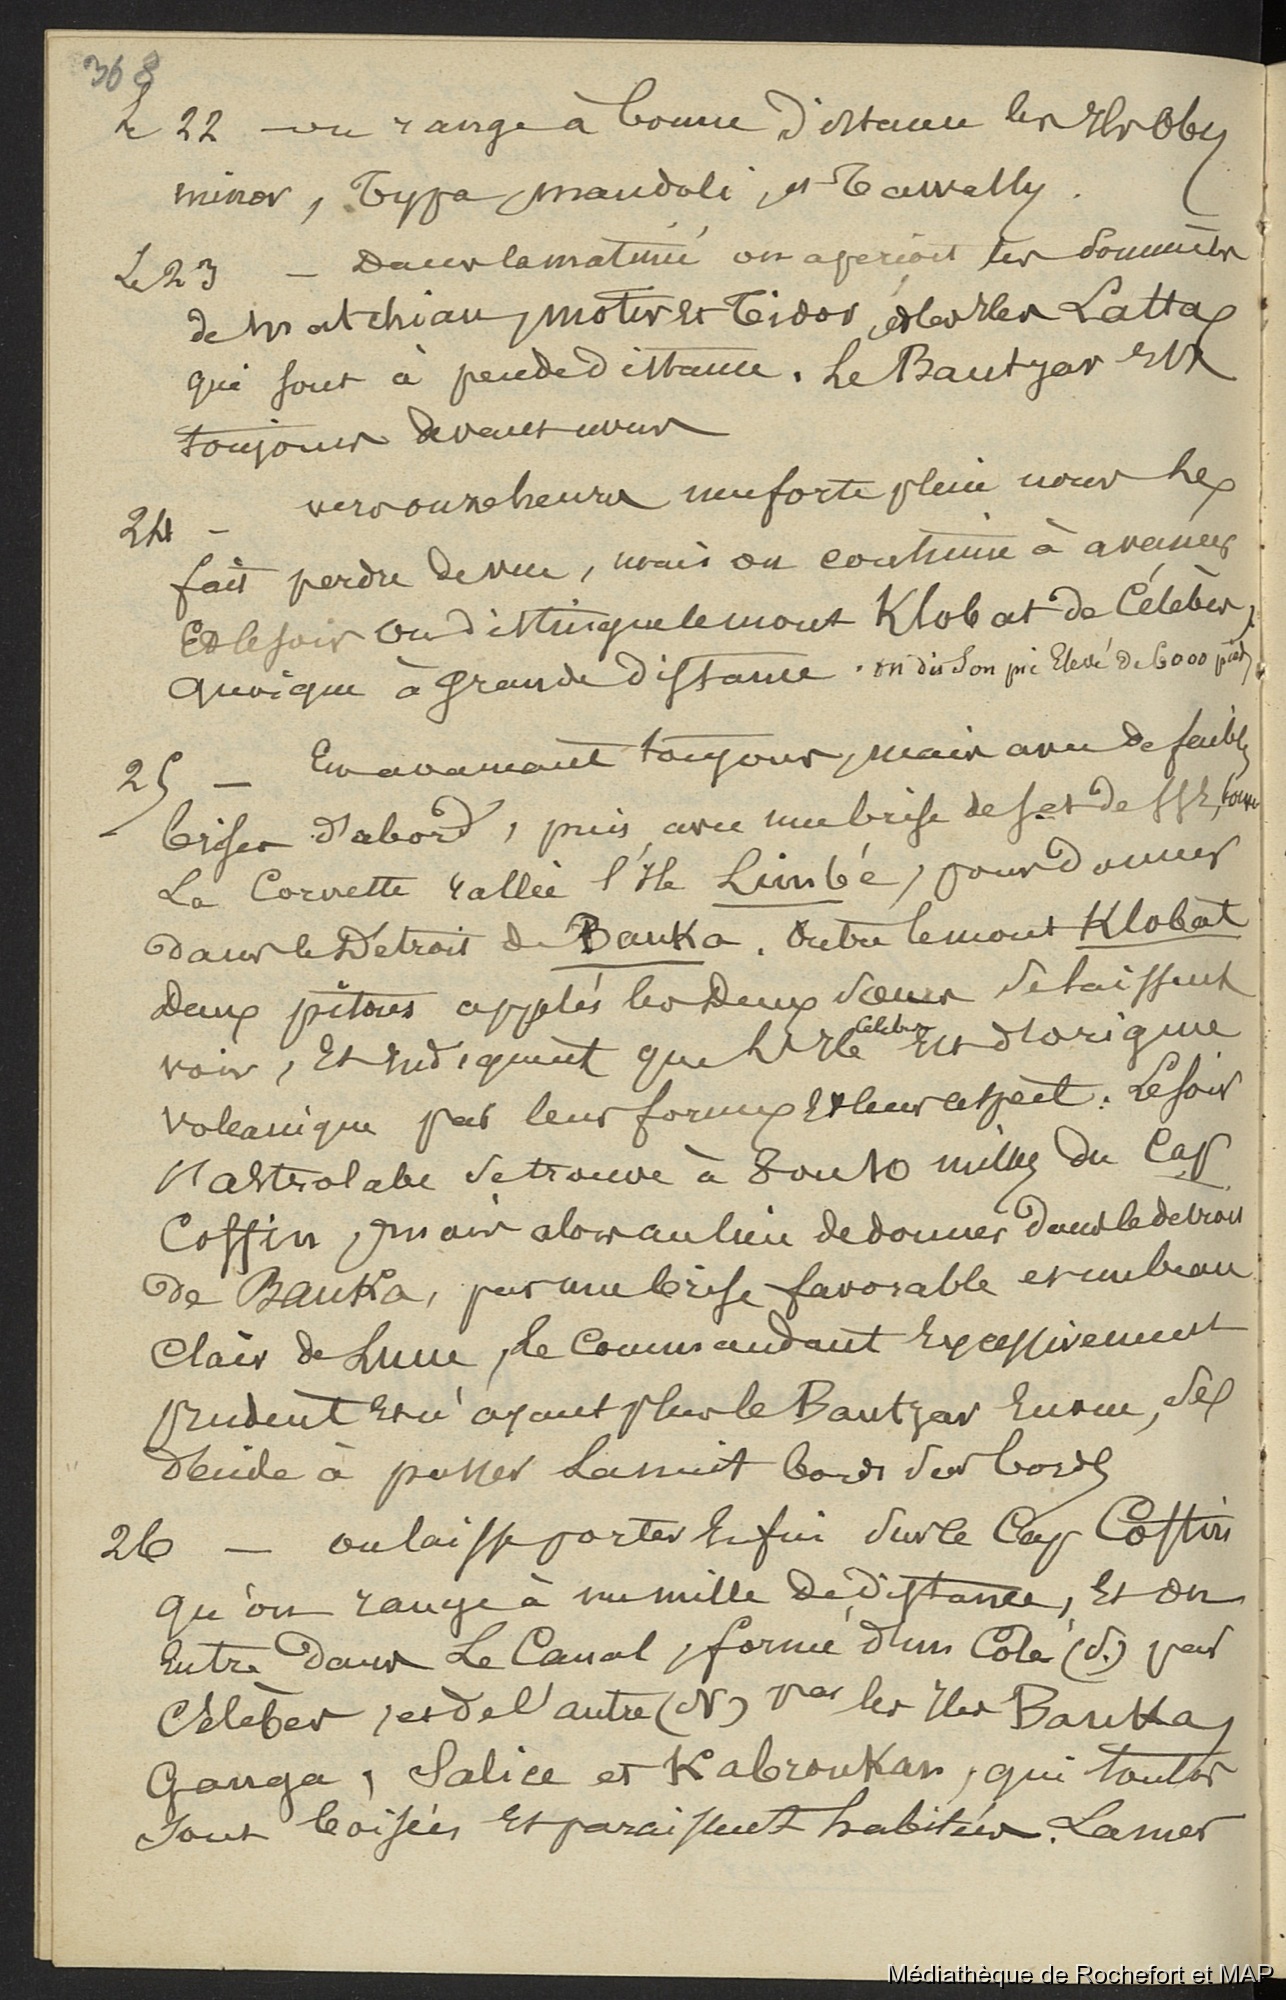 368
Le 22 — on range à bonne distance les Iles Oby
minor, Typa, mandoli, et Tawally.
Le 23 — Dans la matinée on aperçoit les sommets
de Matchian, Motir et Tidor, et les Iles Latta
qui sont à peu de distance. Le Bantzar est
toujours devant nous
24 — vers onze heures une forte pluie nous le
fait perdre de vue, mais on continue à avancer
Et le soir on distingue le mont Klobat de Célèbes,
quoique à grande distance. on dit son pic Elevé de 6000 pieds
25 — En avançant toujours, mais avec de faibles
brises d'abord, puis, avec une brise de S. et de SSE,
La Corvette rallie l'Ile Limbé, pour donner
dans le Détroit de Banka. Outre le mont Klobat
deux pitons appelés les Deux Soeurs se laissent
voir, Et indiquent que l'Ile Célèbes Est d'origine
volcanique par leur forme et leur aspect. Le soir
l'Astrolabe se trouve à 8 ou 10 milles du Cap
Coffin, mais alors au lieu de donner dans le détroit
de Banka, par une brise favorable et un beau
Clair de Lune, le Commandant Excessivement
prudent et n'ayant plus le Bantzar En vue, se
décide à passer La nuit bords sur bords
26 — on laisse porter Enfin sur le Cap Coffin
qu'on range à un mille de distance, Et on
Entre dans Le Canal, formé d'un Coté (S.) par
Célèbes, et de l'autre (N) par les Iles Banka,
Ganga, Salice et Kabroukan, qui toutes
sont boisées Et paraissent habitées. La mer
Médiathèque de Rochefort et MAP